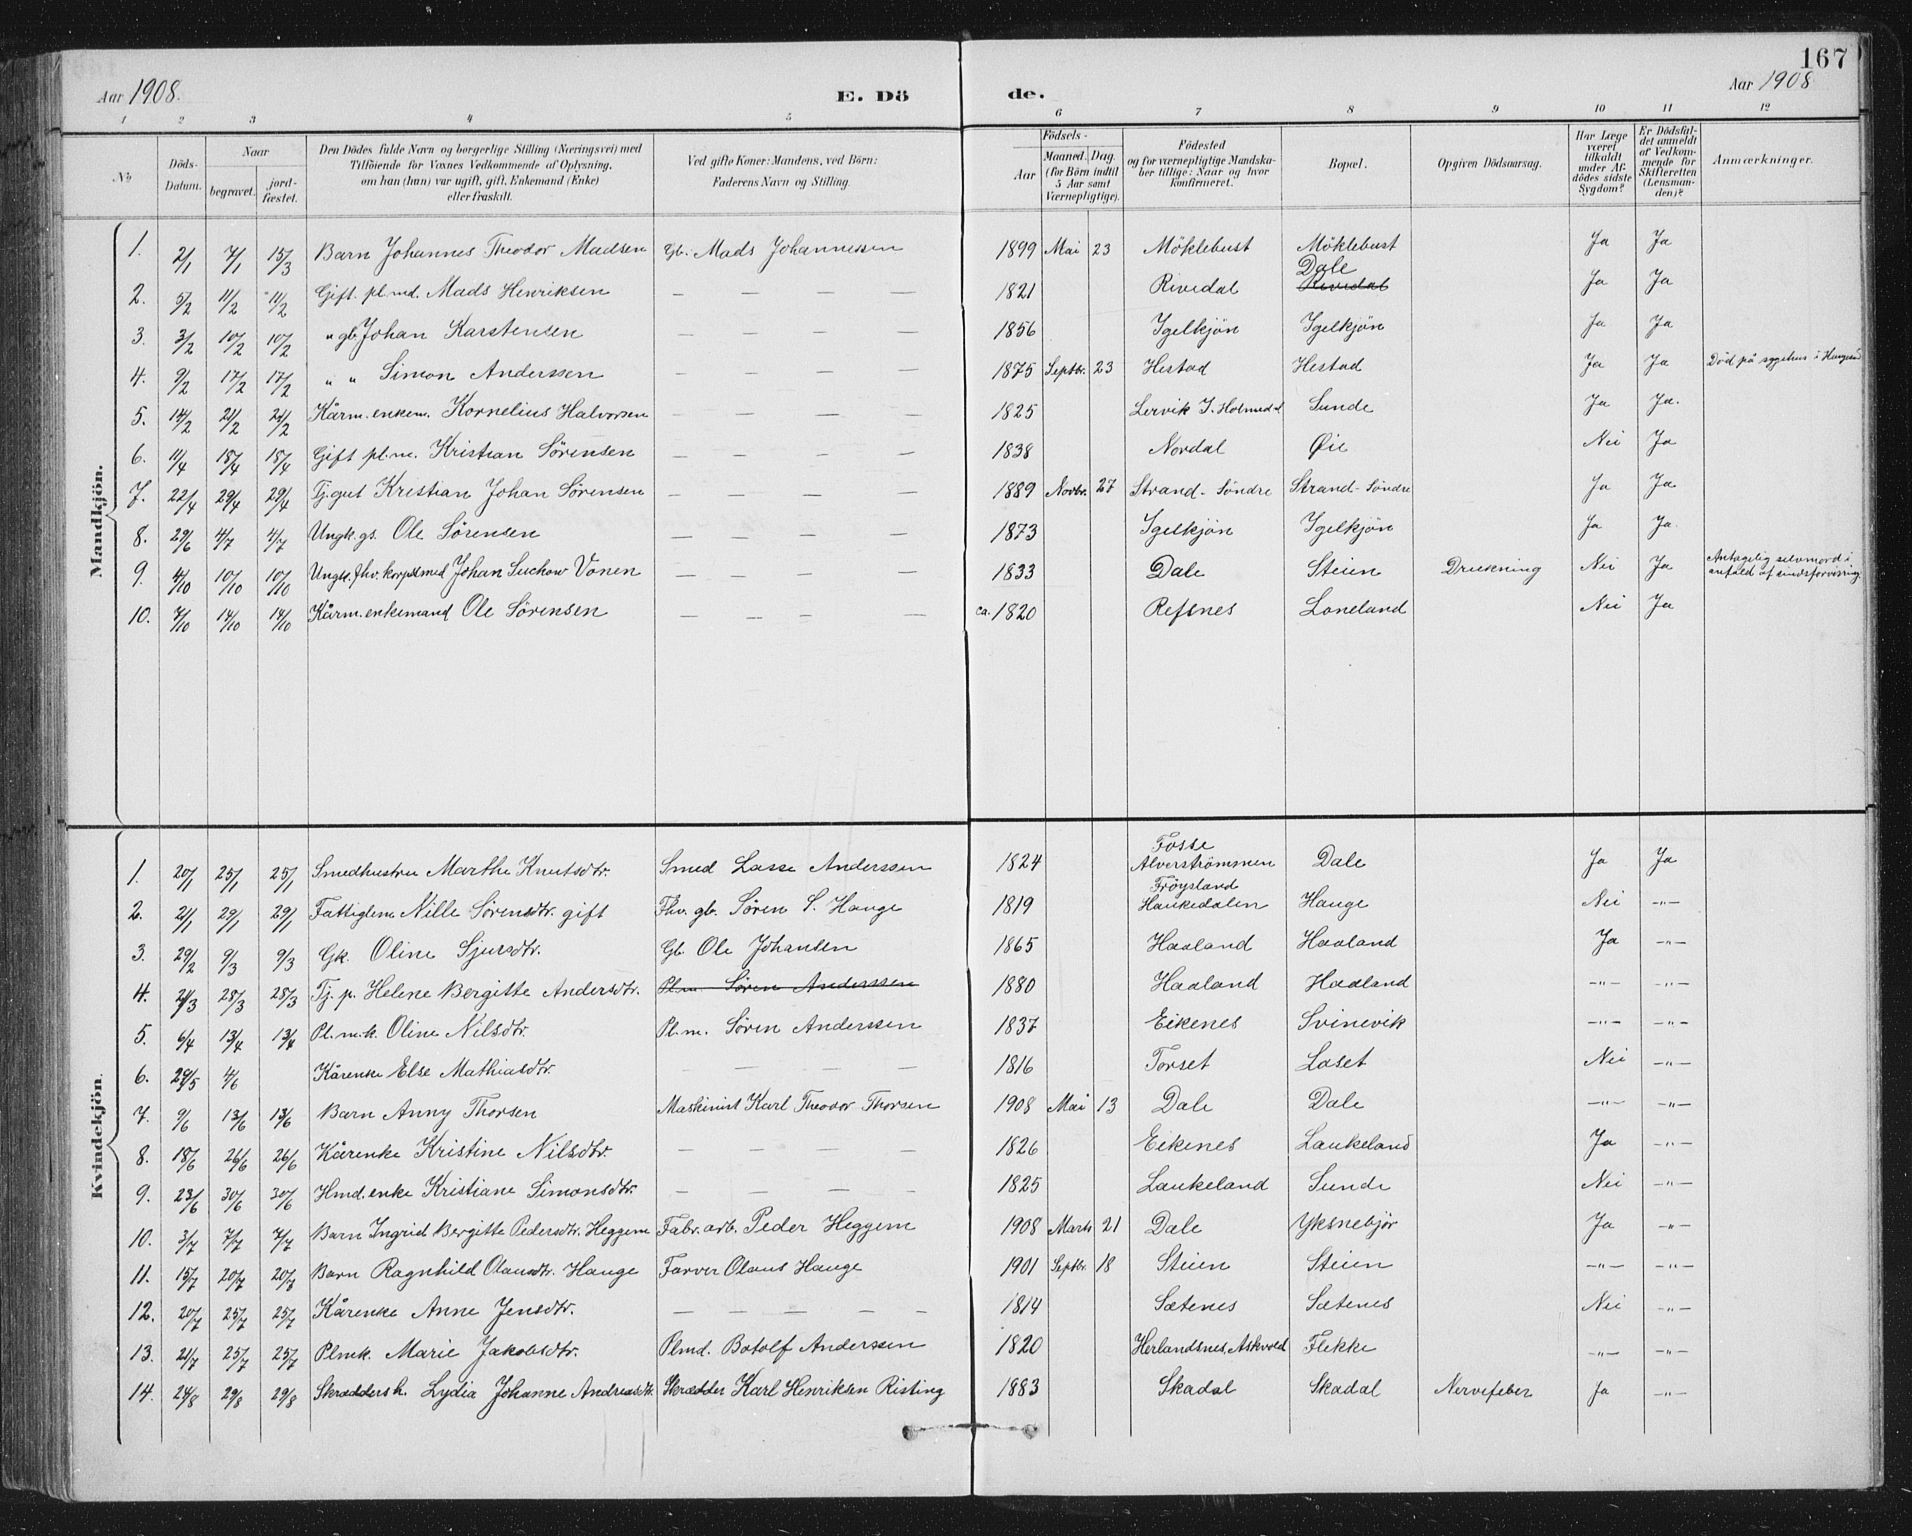 167
Aar 1908.
E. Dö
de.
Aar 1908
1 2 3 4 5 6 7 8 9 10 11 12
No
Döds-Datum.
Naar
begravet.
jord-fæstet.
Den Dödes fulde Navn og borgerlige Stilling (Næringsvei) med
Tilföiende for Voxnes Vedkommende af Oplysning,
om han (hun) var ugift, gift, Enkemand (Enke)
eller fraskilt.
Ved gifte Koner: Mandens, ved Börn:
Faderens Navn og Stilling.
Födsels-
Aar
Maaned. Dag.
(for Börn indtil
5 Aar samt
Værnepligtige).
Födested
og for værnepligtige Mandska-
ber tillige: Naar og hvor
konfirmeret.
Bopæl.
Opgiven Dödsaarsag.
Har Læge
været
tilkaldt
under Af-
dödes sidste
Sygdom?
Er Dödsfal-
det anmeldt
af Vedkom-
mende for
Skifteretten
(Lensman-
den)?
Anmærkninger.
Mandkjön.
1. 2/1 7/1 15/3 Barn Johannes Theodor Madsen Gb. Mads Johannessen 1899 Mai 23 Möklebust Möklebust Ja Ja
Dale
2. 5/2 11/2 11/2 Gift. pl.md. Mads Henriksen — — — — 1821 Rivedal Rivedal Ja Ja
3. 3/2 10/2 10/2 " gb. Johan Karstensen — — — — 1856 Igelkjön Igelkjön Ja Ja
4. 9/2 17/2 17/2 " " Simon Anderssen — — — — 1875 Septbr. 23 Hestad Hestad Ja Ja Död på sygehus i Haugesund
5. 14/2 21/2 21/2 Kårm. enkem. Kornelius Halvorsen — — — — 1825 Lervik I. Holmedal Sunde Ja Ja.
6. 11/4 18/4 18/4 Gift pl.m. Kristian Sørensen — — — — 1838 Nordal Øie Nei Ja
7. 22/4 29/4 29/4 Tj.gut Kristian Johan Sørensen — — — — 1889 Novbr. 27 Strand-Söndre Strand-Söndre Ja Ja
8. 29/6 4/7 4/7 Ungk. gs. Ole Sørensen — — — — 1873 Igelkjön Igelkjön Ja Ja.
9. 4/10 10/10 10/10 Ungk. fhv. korpssmed Johan Suchow Vonen — — — — 1833 Dale Steien Drukning Nei Ja Antagelig selvmord i
anfald af sindsforvirring.
10. 7/10 14/10 14/10 Kårm. enkemand Ole Sørensen — — — — ca. 1820 Refsnes Loneland Nei Ja
Kvindekjön.
Fosse
1. 20/1 25/1 25/1 Smedhustru Marthe Knutsdtr. Smed Lasse Anderssen 1824 Alverströmmen Dale Ja Ja
Fröysland
2. 21/1 29/1 29/1 Fattiglem Nille Sørensdtr. gift Fhv. gb. Søren S. Hauge 1819 Haukedalen Hauge Nei —"—
3. 29/2 9/3 9/3 Gk. Oline Sjursdtr. Gb. Ole Johansen 1865 Haaland Haaland Ja —"—
4. 21/3 28/3 28/3 Tj. p. Helene Bergitte Andersdtr. Pl.m. Søren Anderssen 1880 Haaland Haaland —"— —"—
5. 6/4 13/4 13/4 Pl.m.k. Oline Nilsdtr. Pl.m. Søren Anderssen 1837 Eikenes Svinevik —"— —"—
6. 29/5 4/6 Kårenke Else Mathiasdtr. — — — — 1816 Torset Laset Nei —"—
7. 9/6 13/6 13/6 Barn Anny Thorsen Maskinist Karl Theodor Thorsen 1908 Mai 13 Dale Dale —"— —"—
8. 18/6 26/6 26/6 Kårenke Kristine Nilsdtr. — — — — 1826 Eikenes Laukeland Ja —"—
9. 23/6 30/6 30/6 Hmd. enke Kristiane Simonsdtr. — — — — 1825 Laukeland Sunde Nei —"—
10. 3/7 7/7 7/7 Barn Ingrid Bergitte Pedersdtr. Heggem Fabr. arb. Peder Heggem 1908 Marts 21 Dale Yksnebjør Ja —"—
11. 15/7 20/7 20/7 Barn Ragnhild Olausdtr. Hauge Farver Olaus Hauge 1901 Septbr. 18 Steien Steien —"— —"—
12. 20/7 25/7 25/7 Kårenke Anne Jensdtr. — — — — — 1814 Sætenes Sætenes Nei —"—
13. 21/7 25/7 25/7 Plmk. Marie Jakobsdtr. Plmd. Botolf Anderssen 1820 Herlandsnes, Askvold Flekke —"— —"—
14. 24/8 29/8 29/8 Skræddersh. Lydia Johanne Andreasdtr. Skrædder Karl Henriksen Risting 1883 Skadal Skadal Nervefeber Ja —"—